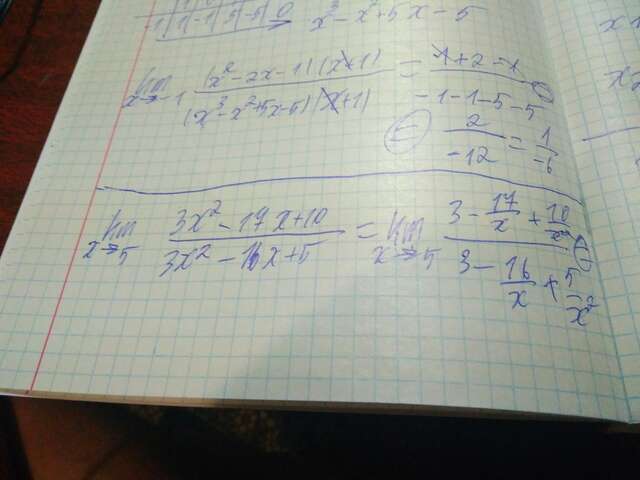 -1 | 1 | -1 | 5 | -5 | 0 x³ - x² + 5x - 5
lim x→-1 (x² - 2x - 1)(x+1) / (x³ - x² + 5x - 5)(x+1) = 1 + 2 - 1 / -1 - 1 - 5 - 5 =
= 2 / -12 = 1 / -6
lim x→5 3x² - 17x + 10 / 3x² - 16x + 5 = lim x→5 3 - 17/x + 10/x² / 3 - 16/x + 5/x² =